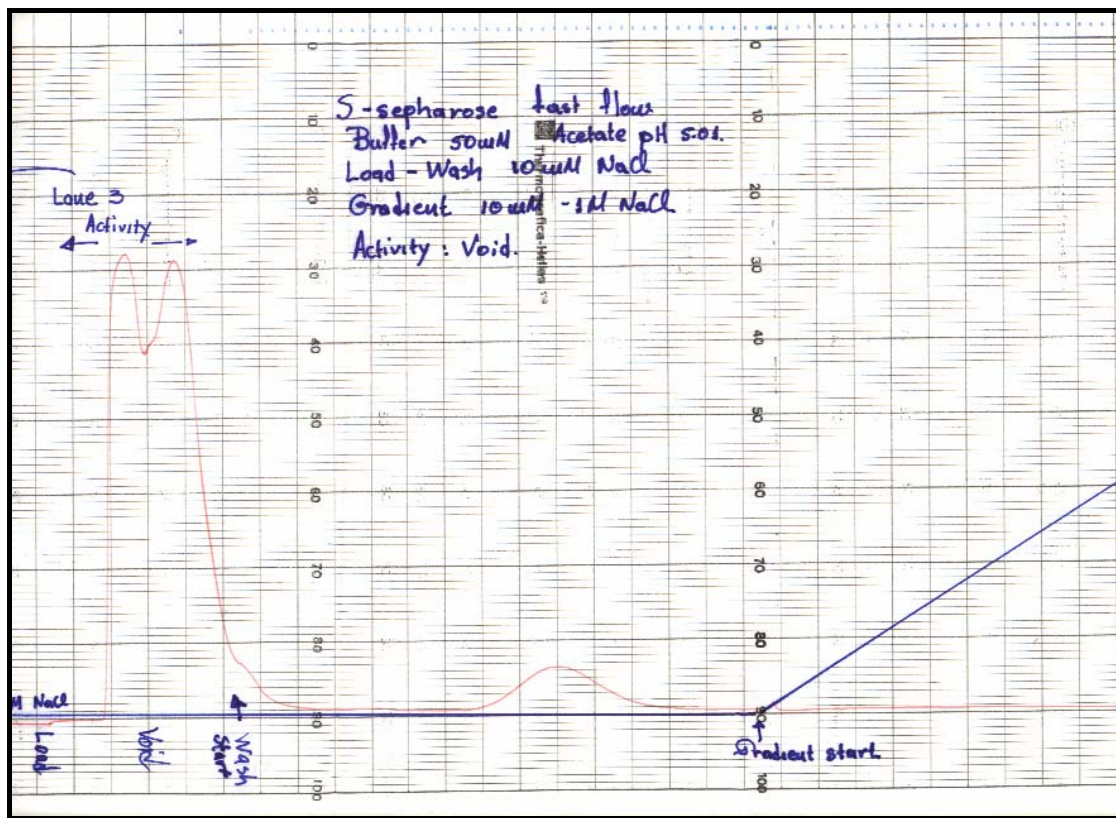 S-sepharose fast flow
Buffer 50mM Acetate pH 5.01.
Load - Wash 10mM NaCl
Gradient 10mM - 1M NaCl
Activity : Void.
Lane 3
Activity
0
10
20
30
40
50
60
70
80
90
100
0
10
20
30
40
50
60
70
80
90
100
M NaCl
Load
Void
Wash
Start
Gradient start